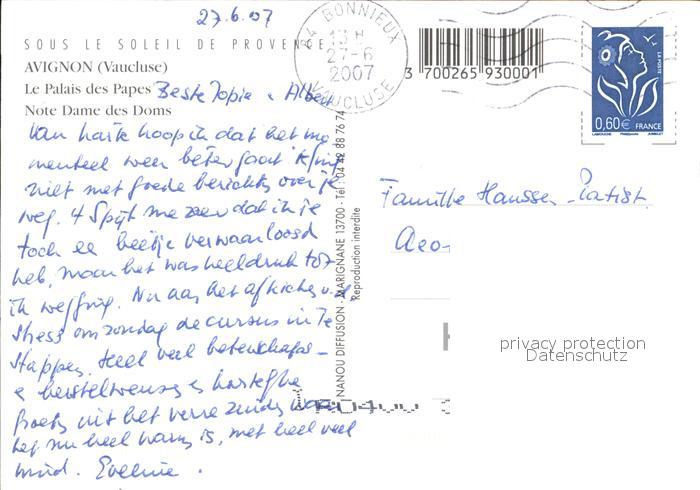 27.6.07
SOUS LE SOLEIL DE PROVENCE
AVIGNON (Vaucluse)
Le Palais des Papes
Note Dame des Doms
84 BONNIEUX
13 H
27-6
2007
VAUCLUSE
3 700265 930001
LA POSTE
0,60€ FRANCE
Beste Jopie & Albert
Van harte hoop ik dat het mo
menteel weer beter gaat
niet met goede berichten over je
weg. 't Spijt me zeer dat ik je
toch een beetje verwaarloosd
heb, maar het was heel druk tot
ik wegging. Nu aan het afkicken v. de
stress om zondag de cursus in te
stappen. Heel veel beterschaps-
en herstelwensen en hartelijke
groeten uit het verre zuiden waar
het nu heel warm is, met heel veel
wind. Eveline.
NANOU DIFFUSION - MARIGNANE 13700 - Tél : 04 42 88 76 74
Reproduction interdite
Familie Hanssen-Ratist
privacy protection
Datenschutz